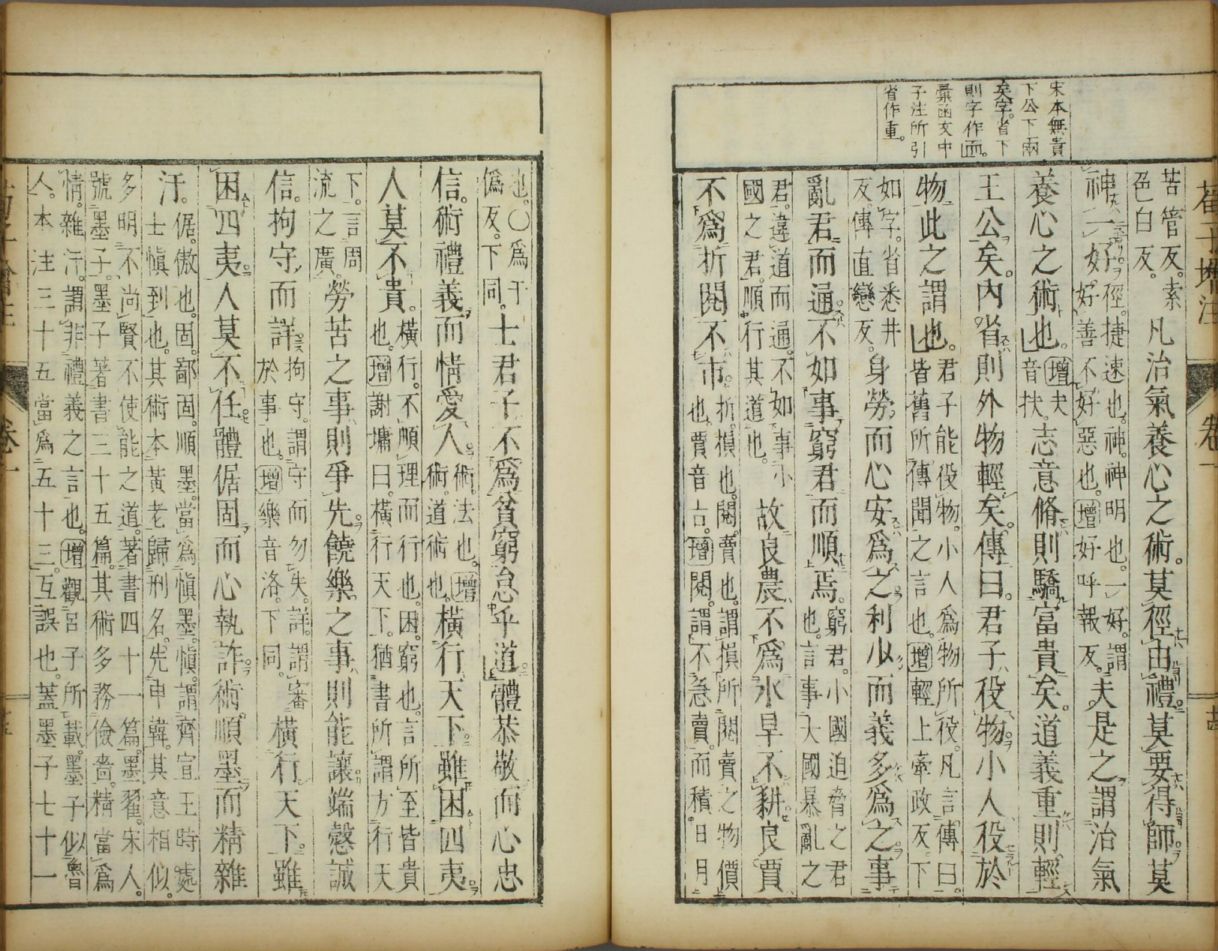 荀子增注 卷一
宋本無貴
下公下兩
矣字。省下
則字作而。
彙函文中
子注所引
省作重。
苦管反。索色白反。凡治氣養心之術。莫徑由禮。莫要得師。莫
神一好。徑。捷速也。神。神明也。一好。謂好善不好惡也。增好呼報反。夫是之謂治氣
養心之術也。增夫音扶。志意脩則驕富貴矣。道義重則輕
王公矣。內省則外物輕矣。傳曰。君子役物。小人役於
物。此之謂也。君子能役物。小人爲物所役。凡言傳曰。皆舊所傳聞之言也。增輕上牽政反。下
如字。省悉井反。傳直戀反。身勞而心安爲之。利少而義多爲之。事
亂君而通。不如事窮君而順焉。窮君。小國迫脅之君也。言事大國暴亂之
君。違道而通。不如事小國之君。順行其道也。故良農不爲水旱不耕。良賈
不爲折閱不市。折。損也。閱。賣也。謂損所閱賣之物價也。賈音古。增閱。謂不急賣。而積日月
也。〇爲于僞反。下同。士君子不爲貧窮怠乎道。體恭敬而心忠
信。術禮義而情愛人。術。法也。增術。道術也。橫行天下。雖困四夷。
人莫不貴。橫行。不順理而行也。困。窮也。言所至皆貴也。增謝墉曰。橫行天下。猶書所謂方行天
下。言周流之廣。勞苦之事則爭先。饒樂之事則能讓。端愨誠
信。拘守而詳。拘守。謂守而勿失。詳。謂審於事也。增樂音洛。下同。橫行天下。雖
困四夷。人莫不任。體倨固而心執詐。術順墨而精雜
汙。倨。傲也。固。鄙固。順墨。當爲愼墨。愼。謂齊宣王時處士愼到也。其術本黃老。歸刑名。先申韓。其意相似。
多明不尚賢不使能之道。著書四十一篇。墨翟。宋人。號墨子。墨子著書三十五篇。其術多務儉嗇。精當爲
情。雜汙。謂非禮義之言也。增觀呂子所載。墨子似魯人。本注三十五。當爲五十三。互誤也。蓋墨子七十一